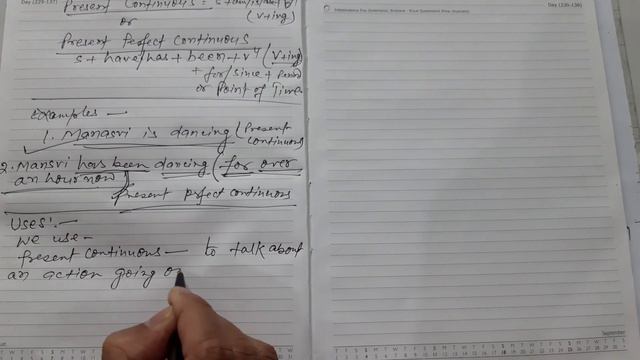 Day (229-137)
Present Continuous : s + am/is/are + v⁴
(v+ing)
or
Present Perfect Continuous
s + have/has + been + v⁴ (v+ing)
+ for/since +
or Point of Time
Examples —
1. Manasri is dancing (Present
Continuous
2. Mansri has been dancing (for over
an hour now)
Present prfect continuous
Uses:—
We use—
Present Continuous — to talk about
an action going o
Day (230-136)